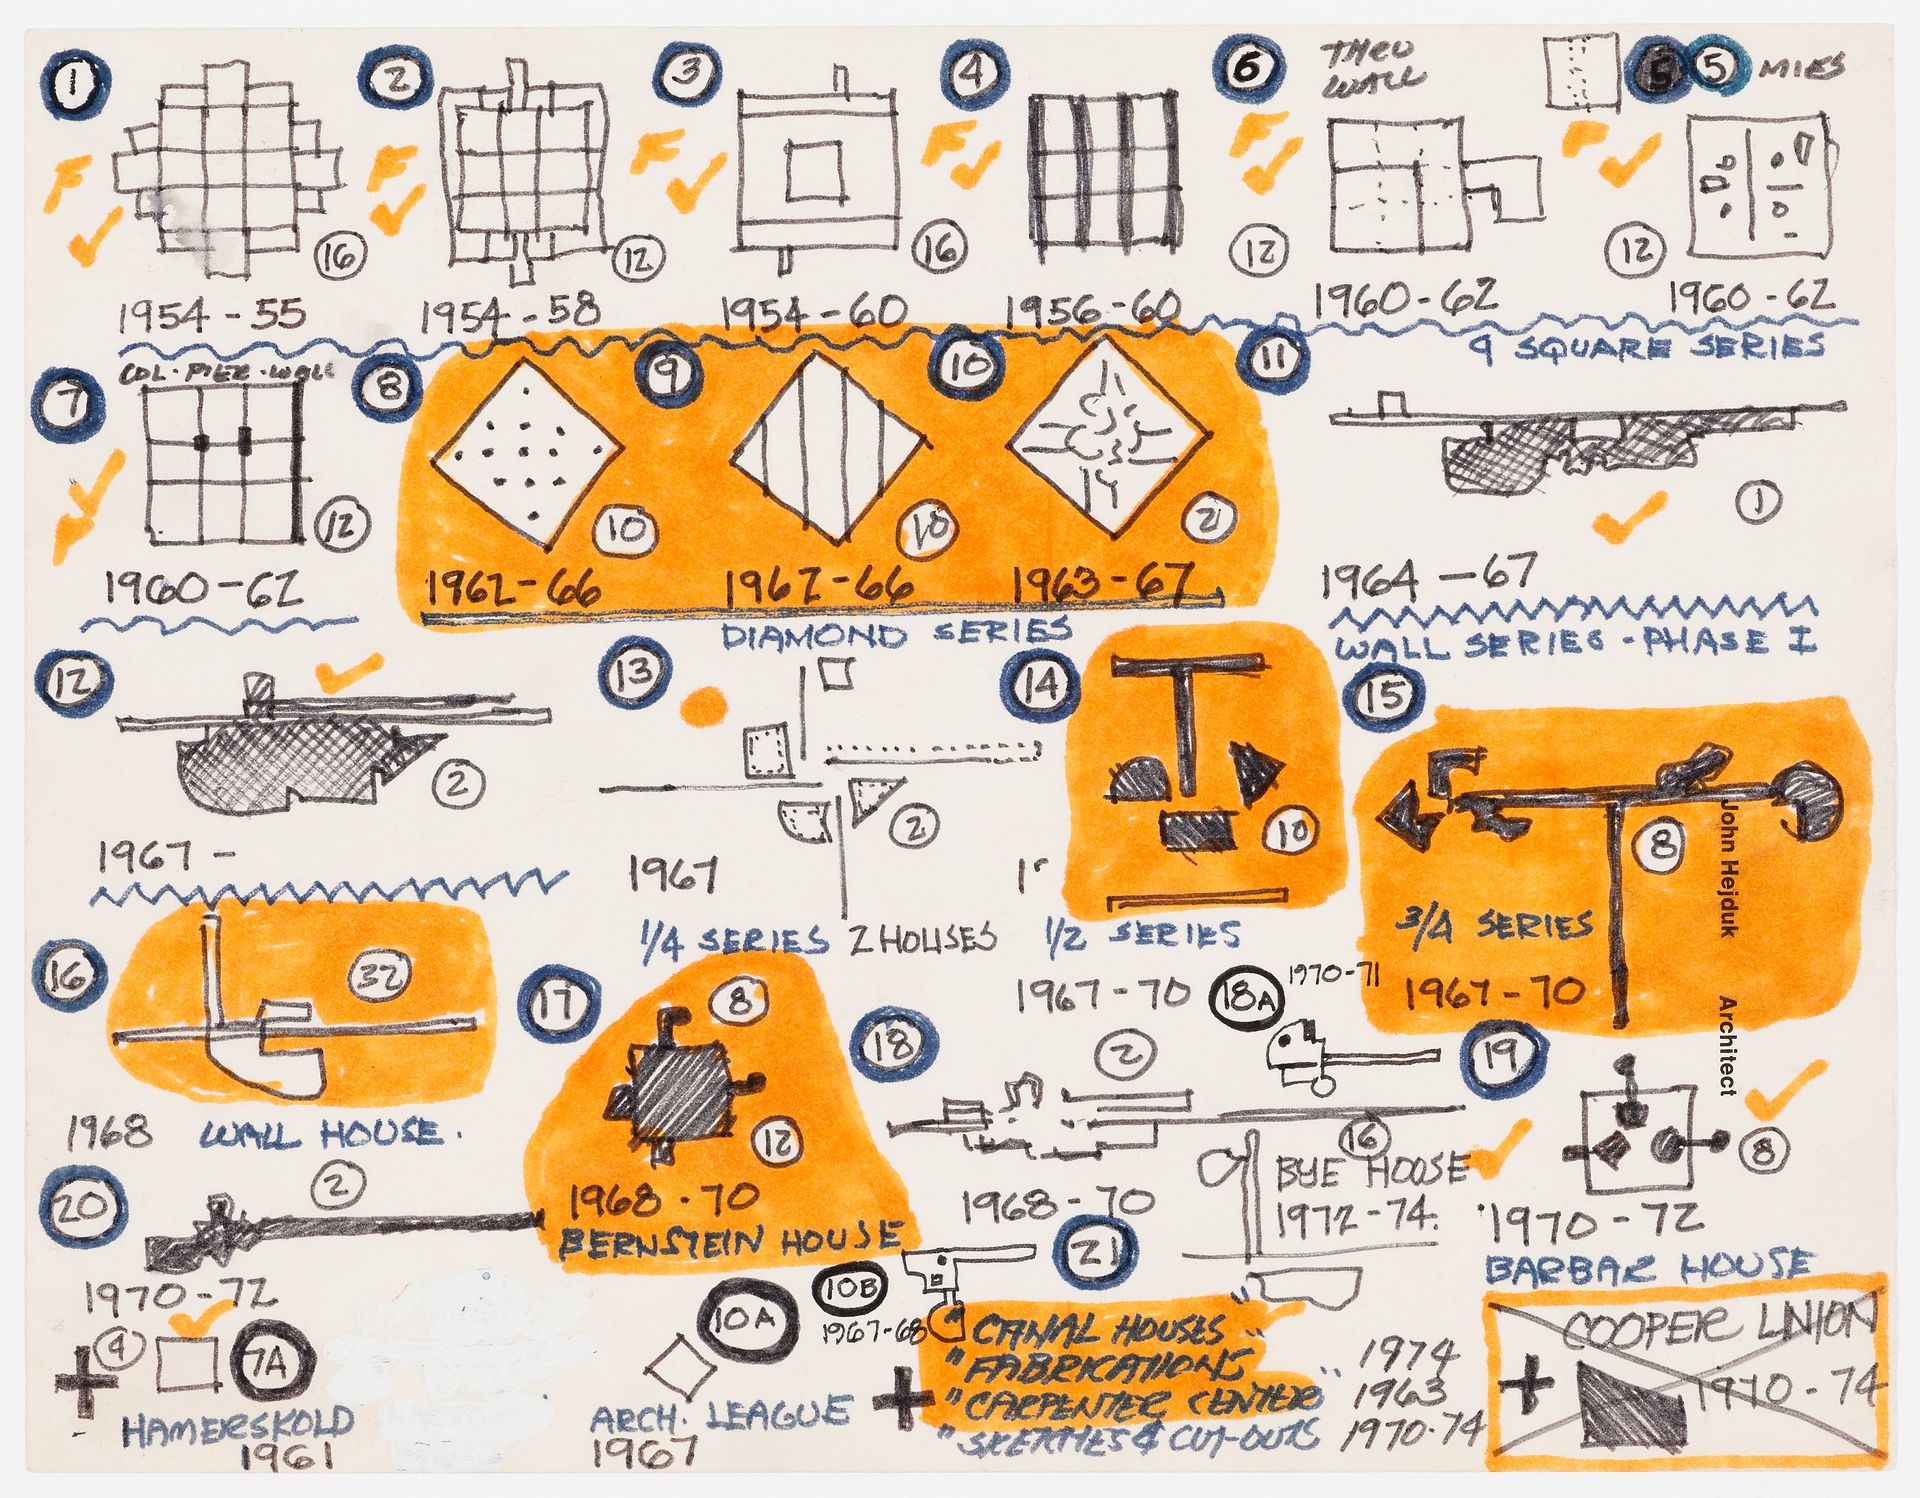 1
2
3
4
6
THRU
WALL
5
5
MIES
F
F
F
F
F
F
16
12
16
12
12
1954-55
1954-58
1954-60
1956-60
1960-62
1960-62
9 SQUARE SERIES
COL·PIER·WALL
7
8
9
10
11
12
10
10
2
1
F
1960-62
1962-66
1962-66
1963-67
1964-67
DIAMOND SERIES
WALL SERIES-PHASE I
12
13
14
15
2
2
10
8
1967-
1967
1/4 SERIES 2 HOUSES
1/2 SERIES
1967-70
3/4 SERIES
1967-70
John Hejduk Architect
16
32
17
8
12
18
2
18A
1970-71
19
16
8
1968 WALL HOUSE.
1968-70
BERNSTEIN HOUSE
1968-70
BYE HOUSE
1972-74.
1970-72
BARBAR HOUSE
20
2
1970-72
21
4
7A
HAMERSKOLD
1961
10A
10B
1967-68
ARCH. LEAGUE
1967
"CANAL HOUSES"
"FABRICATIONS
"CARPENTER CENTER"
"SKETCHES & CUT-OUTS
1974
1963
1970-74
COOPER UNION
1970-74